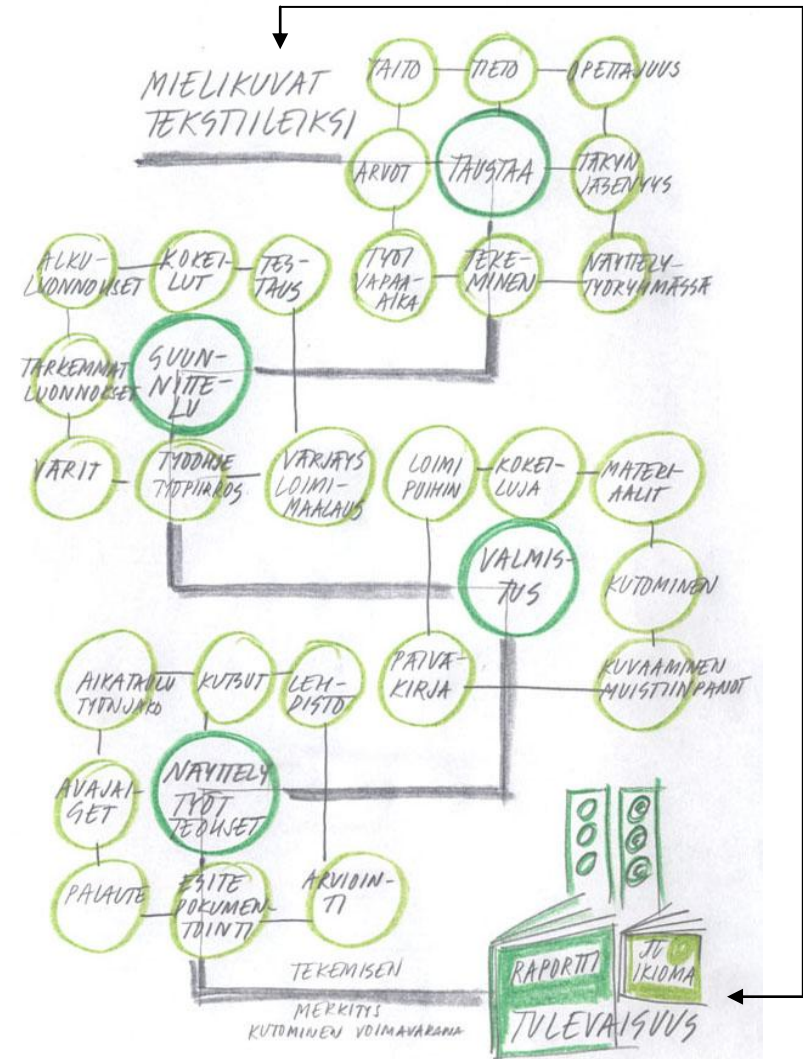 MIELIKUVAT
TEKSTIILEIKSI
TAITO
TIETO
OPETTAJUUS
ARVOT
TAUSTAA
TAKYN
JÄSENYYS
TYÖT
VAPAA-
AIKA
TEKE-
MINEN
NÄYTTELY-
TYÖRYHMÄSSÄ
ALKU-
LUONNOKSET
KOKEI-
LUT
TES-
TAUS
TARKEMMAT
LUONNOKSET
SUUN-
NITTE-
LU
VÄRIT
TYÖOHJE
TYÖPIIRROS
VÄRJÄYS
LOIMI-
MAALAUS
LOIMI
PUIHIN
KOKEI-
LUJA
MATERI-
AALIT
VALMIS-
TUS
KUTOMINEN
PÄIVÄ-
KIRJA
KUVAAMINEN
MUISTIINPANOT
AIKATAULU
TYÖNJAKO
KUTSUT
LEH-
DISTÖ
AVAJAI-
SET
NÄYTTELY
TYÖT
TEOKSET
PALAUTE
ESITE
DOKUMEN-
TOINTI
ARVIOIN-
TI
TEKEMISEN
MERKITYS
KUTOMINEN VOIMAVARANA
RAPORTTI
IKIOMA
TULEVAISUUS